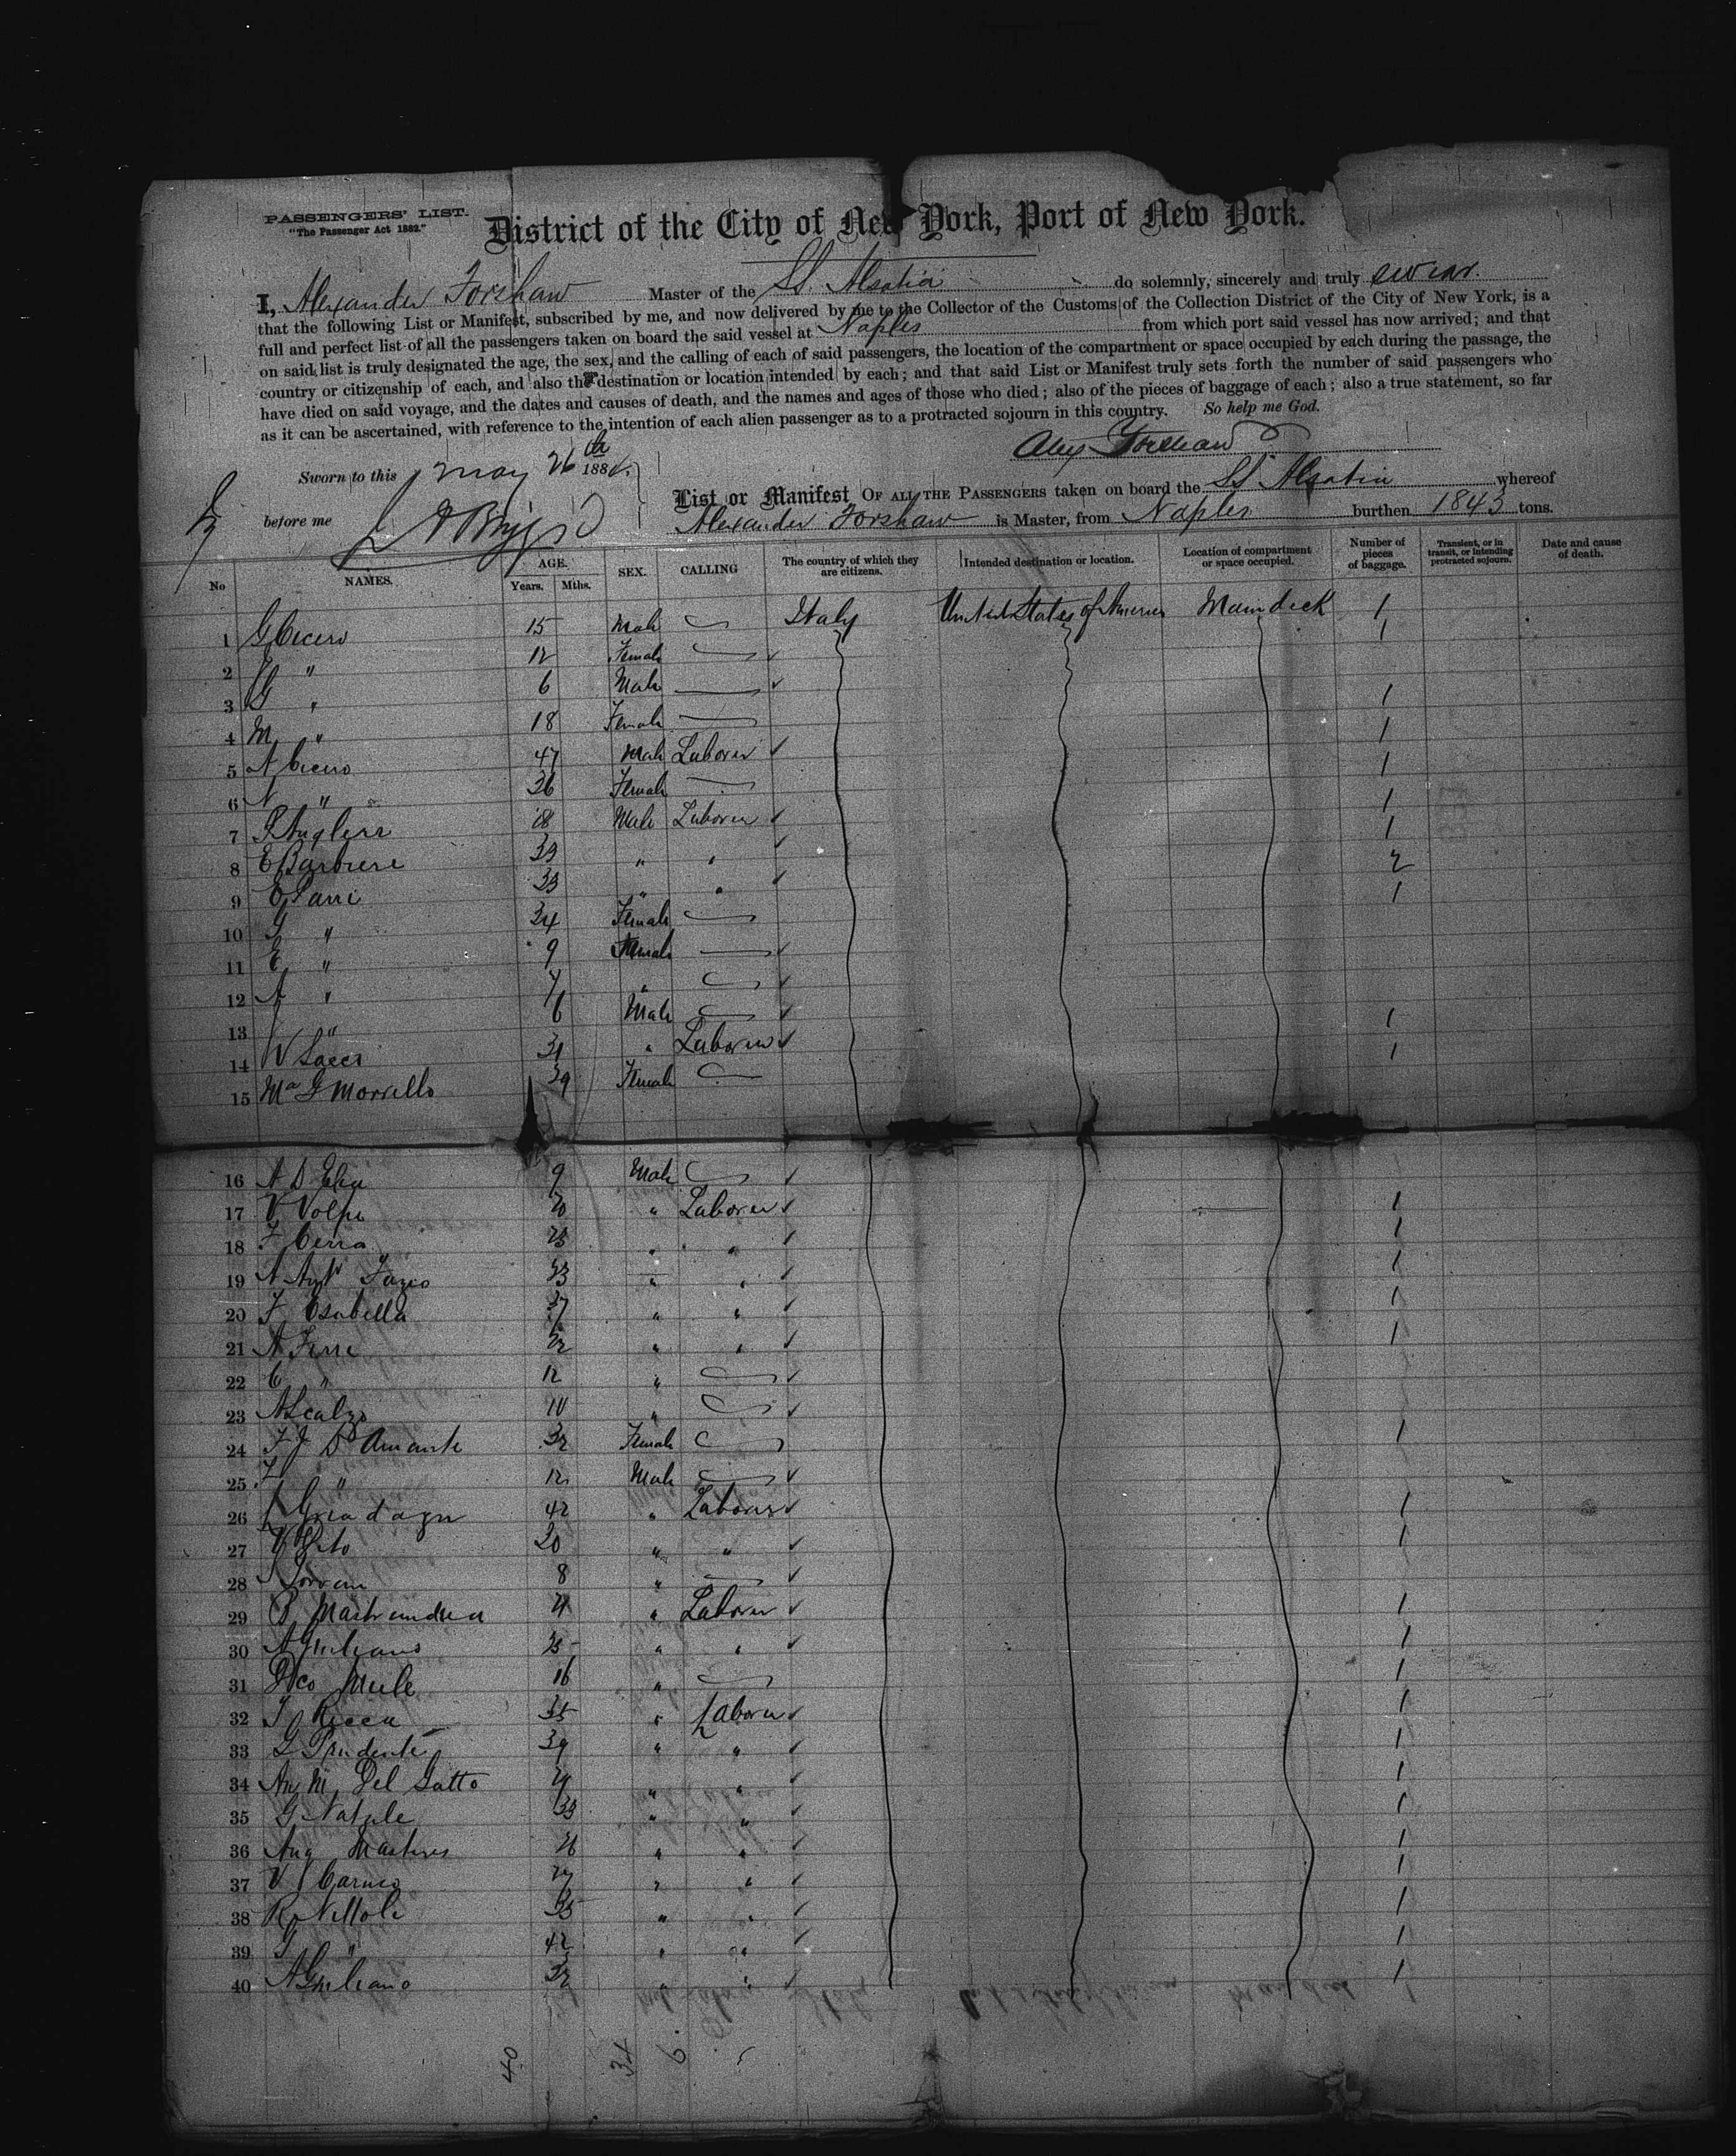 PASSENGERS' LIST.
"The Passenger Act 1882."
District of the City of New York, Port of New York.
I, Alexander Forshaw Master of the SS. Alsatia do solemnly, sincerely and truly swear.
that the following List or Manifest, subscribed by me, and now delivered by me to the Collector of the Customs of the Collection District of the City of New York, is a
full and perfect list of all the passengers taken on board the said vessel at Naples from which port said vessel has now arrived; and that
on said list is truly designated the age, the sex, and the calling of each of said passengers, the location of the compartment or space occupied by each during the passage, the
country or citizenship of each, and also the destination or location intended by each; and that said List or Manifest truly sets forth the number of said passengers who
have died on said voyage, and the dates and causes of death, and the names and ages of those who died; also of the pieces of baggage of each; also a true statement, so far
as it can be ascertained, with reference to the intention of each alien passenger as to a protracted sojourn in this country. So help me God.
Alex Forshaw
Sworn to this May 26th 188
before me
List or Manifest OF ALL THE PASSENGERS taken on board the SS Alsatia whereof
Alexander Forshaw is Master, from Naples burthen 1843 tons.
No NAMES. AGE. Years. Mths. SEX. CALLING The country of which they are citizens. Intended destination or location. Location of compartment or space occupied. Number of pieces of baggage. Transient, or in transit, or intending protracted sojourn. Date and cause of death.
1 G Cicero 15 Male Italy United States of America Main deck 1
2 " 12 Female 1
3 G " 6 Male
4 M " 18 Female 1
5 N Cicero 47 Male Laborer 1
6 N " 36 Female 1
7 18 Male Laborer 1
8 E Barbieri 33 " " 1
9 33 " " 2
10 G " 34 Female 1
11 E " 9 Female
12 A " 7 "
13 " 6 Male
14 V Sacci 31 " Laborer 1
15 Ma G Morrello 39 Female 1
16 A D Elia 9 Male
17 V Volpe 20 " Laborer 1
18 F Cerra 23 " " 1
19 A Fazio 33 " " 1
20 F Esabella 37 " " 1
21 A Ferre 22 " " 1
22 C " 12 "
23 A Scalzo 10 "
24 F J D'Amante 32 Female 1
25 " 12 Male
26 42 " Laborer 1
27 V 20 " " 1
28 8 "
29 Mastrandrea " Laborer 1
30 A Giuliano 35 " " 1
31 Mule 16 " 1
32 Ricca 35 " Laborer 1
33 L Prudente 39 " " 1
34 An M Del Gatto " " 1
35 G Natale 33 " " 1
36 Ang " " 1
37 V Caruso 27 " " 1
38 R 35 " " 1
39 " 42 " " 1
40 A Giuliano 32 " " 1
40 34 6